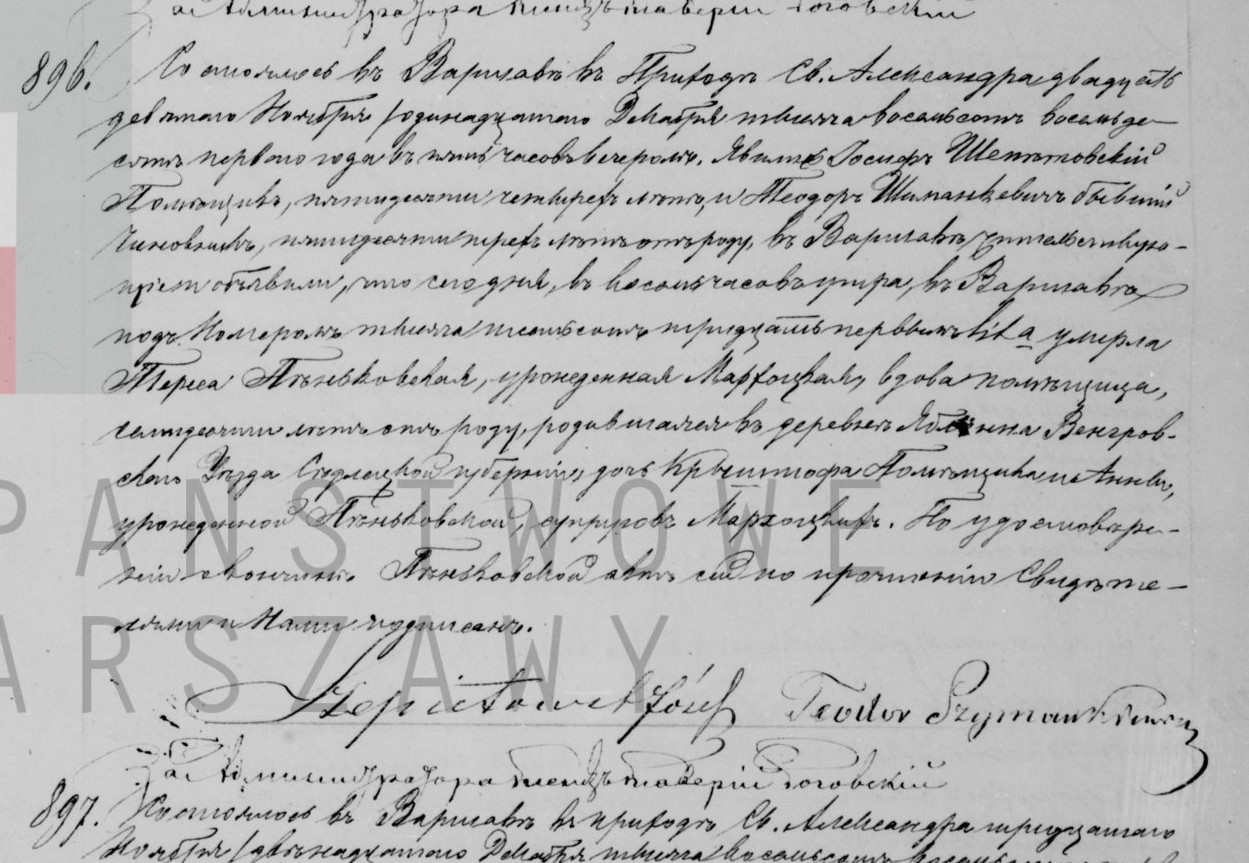 За Администратора Ксендзъ Ксаверій Роговскій
896. Состоялось въ Варшавѣ въ Приходѣ Св. Александра двадцать
девятаго Ноября /одинадцатаго Декабря тысяча восемьсотъ восемьде-
сятъ перваго года въ пять часовъ вечеромъ. Явились Іосифъ Шепѣтовскій
Помѣщикъ, пятидесяти четырехъ лѣтъ, и Теодоръ Шиманкевичъ бывшій
Чиновникъ, пятидесяти трехъ лѣтъ отъ роду, въ Варшавѣ жительствую-
щіе и объявили, что сего дня, въ восемь часовъ утра, въ Варшавѣ
подъ Номеромъ тысяча шестьсотъ тридцать первымъ lit a умерла
Тереса Пѣньковская, урожденная Мархоцкая, вдова помѣщица,
семидесяти лѣтъ отъ роду, родившаяся въ деревнѣ Венгров-
скаго Уѣзда Сѣдлецкой губерніи, дочь Крыштофа Помѣщика и Анны,
урожденной Пѣньковской, супруговъ Мархоцкихъ. По удостовѣре-
ніи о кончинѣ Пѣньковской актъ сей по прочтеніи Свидѣте-
лями и Нами подписанъ.
Szepietowski Józef Teodor Szymankiewicz
За Администратора Ксендзъ Ксаверій Роговскій
897. Состоялось въ Варшавѣ въ приходѣ Св. Александра тридцатаго
Ноября /двѣнадцатаго Декабря тысяча восемьсотъ
PAŃSTWOWE
ARSZAWY